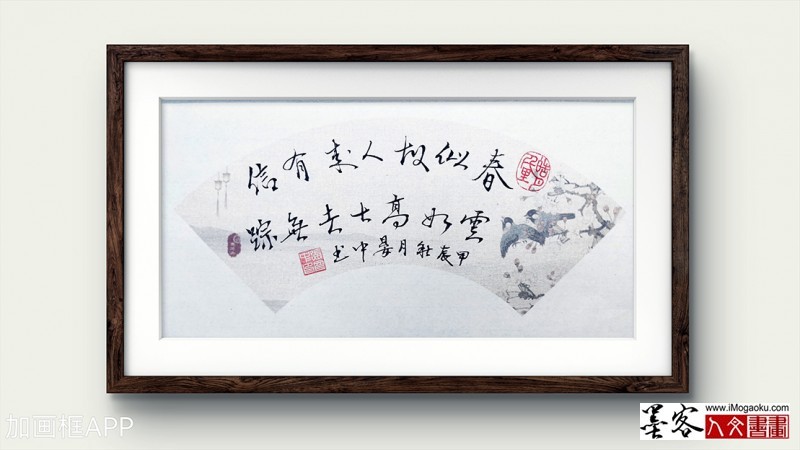 春似故人来有信
雲如高士去無踪
甲辰秋月晏书
加画框APP
墨客
www.iMogaoku.com
人文書畫